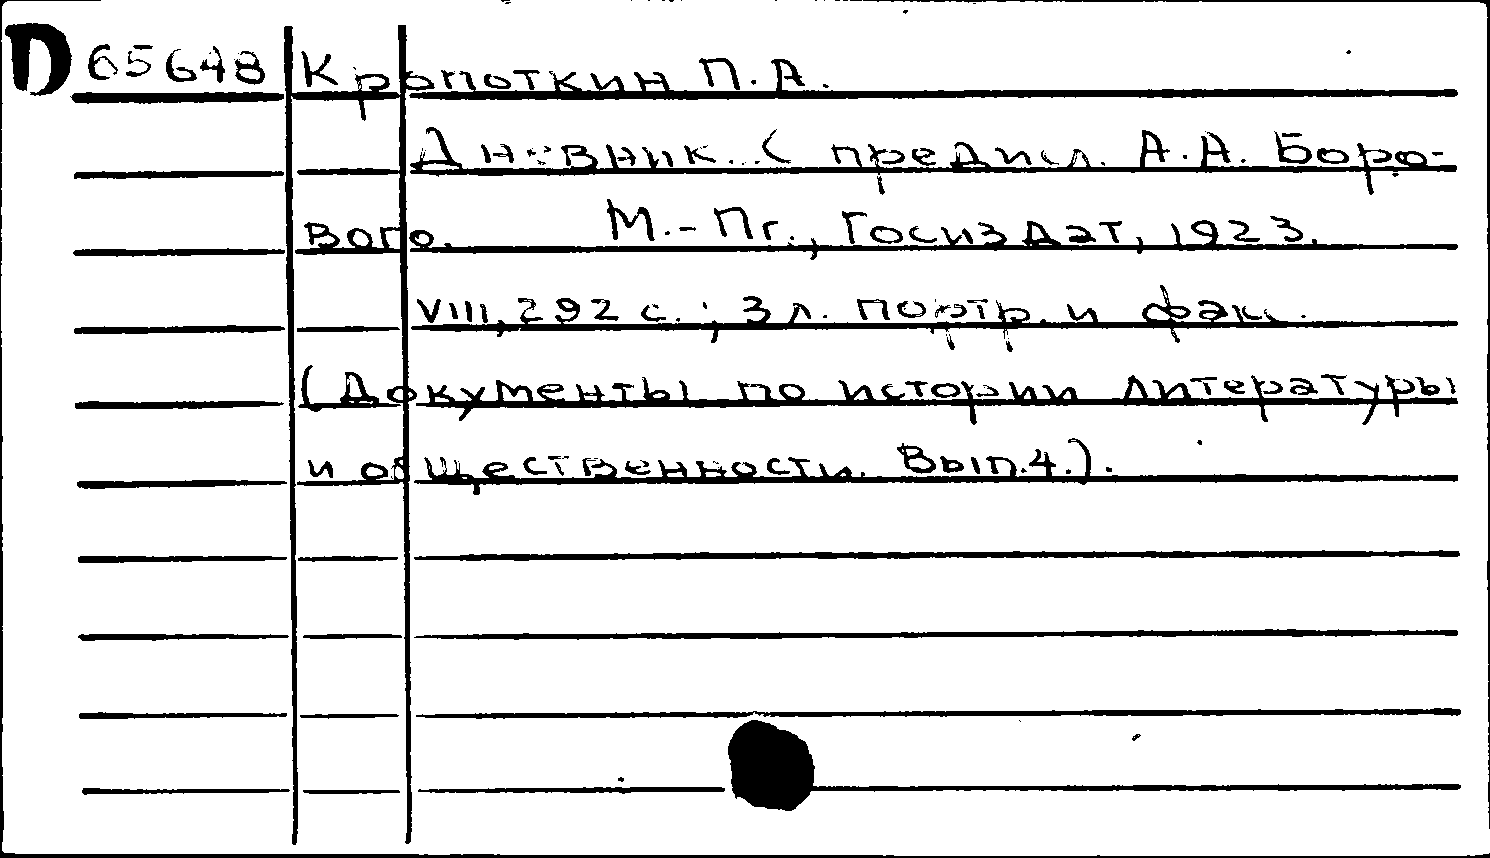 D 65648 Кропоткин П. А.
Дневник...( предисл. А.А. Боро-
вого. М.-Пг., Госиздат, 1923.
VIII, 292 с. ; 3 л. портр. и факс.
(Документы по истории литературы
и общественности. Вып.4.).